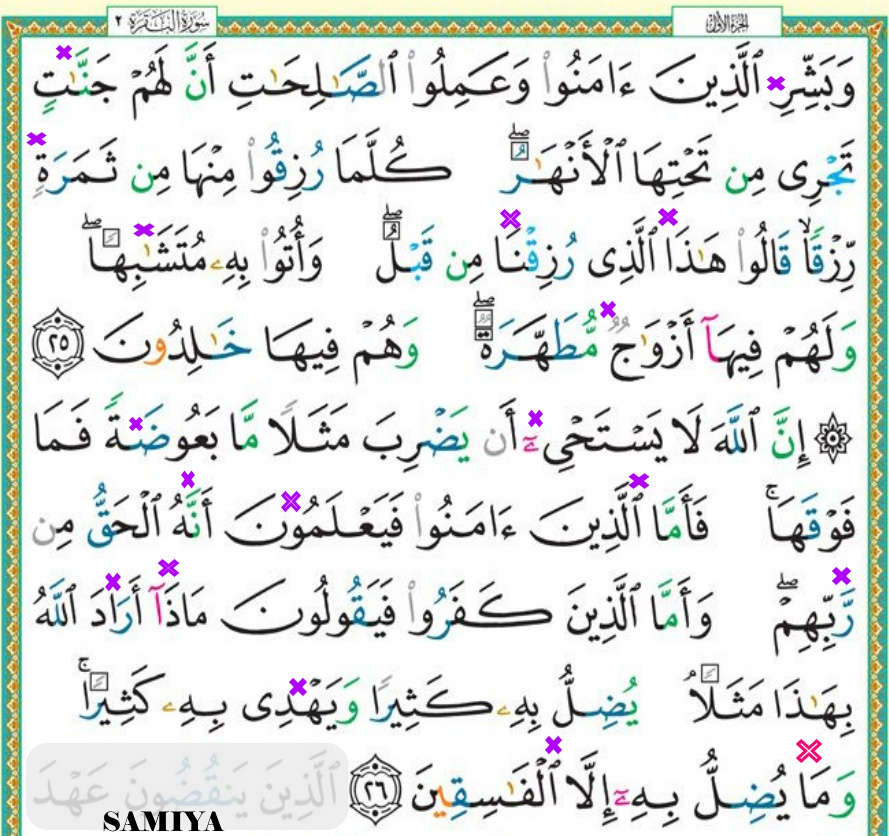 سُورَةُ البَقَرَة ٢ الجُزْءُ الأَوَّل
وَبَشِّرِ ٱلَّذِينَ ءَامَنُواْ وَعَمِلُواْ ٱلصَّٰلِحَٰتِ أَنَّ لَهُمۡ جَنَّٰتٖ
تَجۡرِي مِن تَحۡتِهَا ٱلۡأَنۡهَٰرُۖ كُلَّمَا رُزِقُواْ مِنۡهَا مِن ثَمَرَةٖ
رِّزۡقٗا قَالُواْ هَٰذَا ٱلَّذِي رُزِقۡنَا مِن قَبۡلُۖ وَأُتُواْ بِهِۦ مُتَشَٰبِهٗاۖ
وَلَهُمۡ فِيهَآ أَزۡوَٰجٞ مُّطَهَّرَةٞۖ وَهُمۡ فِيهَا خَٰلِدُونَ ٢٥
۞ إِنَّ ٱللَّهَ لَا يَسۡتَحۡيِۦٓ أَن يَضۡرِبَ مَثَلٗا مَّا بَعُوضَةٗ فَمَا
فَوۡقَهَاۚ فَأَمَّا ٱلَّذِينَ ءَامَنُواْ فَيَعۡلَمُونَ أَنَّهُ ٱلۡحَقُّ مِن
رَّبِّهِمۡۖ وَأَمَّا ٱلَّذِينَ كَفَرُواْ فَيَقُولُونَ مَاذَآ أَرَادَ ٱللَّهُ
بِهَٰذَا مَثَلٗاۘ يُضِلُّ بِهِۦ كَثِيرٗا وَيَهۡدِي بِهِۦ كَثِيرٗاۚ
وَمَا يُضِلُّ بِهِۦٓ إِلَّا ٱلۡفَٰسِقِينَ ٢٦ ٱلَّذِينَ يَنقُضُونَ عَهۡدَ
SAMIYA